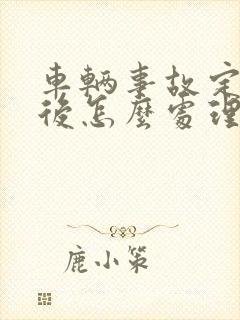 車輛事故定
後怎麼處理
鹿小策